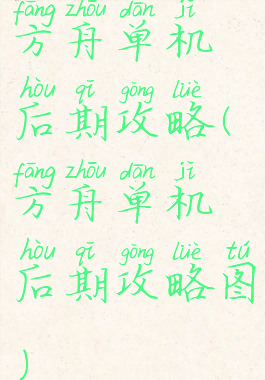 fāng zhōu dān jī
方舟单机
hòu qī gōng lüè
后期攻略(
fāng zhōu dān jī
方舟单机
hòu qī gōng lüè tú
后期攻略图
)